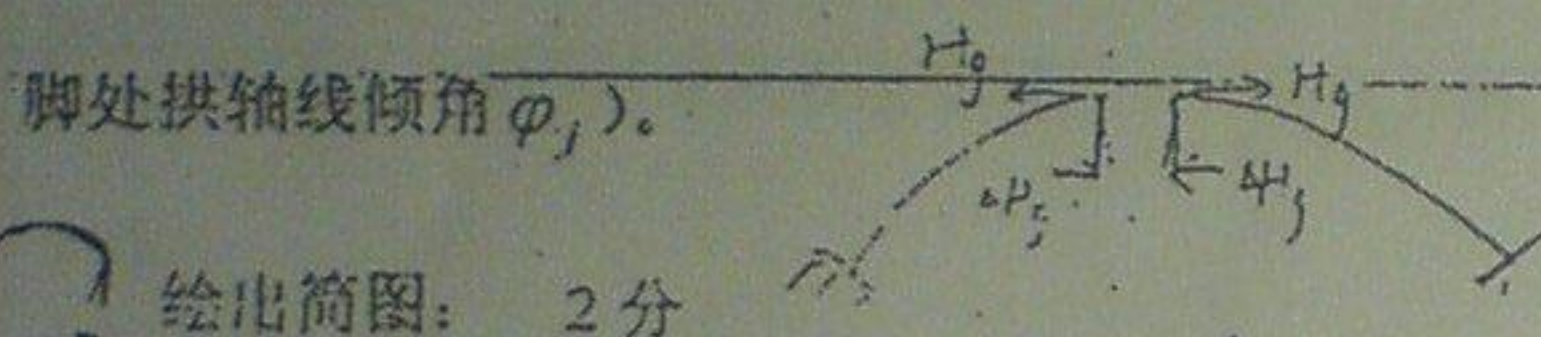 脚处拱轴线倾角φⱼ)。
Hg
Hg
ΔHg
ΔHg
绘出简图: 2分